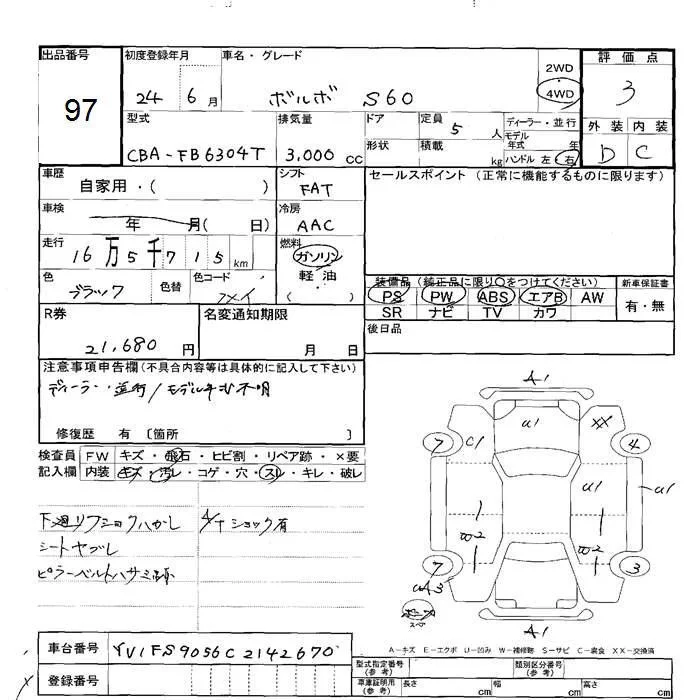 出品番号 初度登録年月 車名・グレード 2WD ・ 4WD 評価点
97 24 6月 ボルボ S60 3
型式 排気量 ドア 定員 5人 ディーラー・並行 外装 内装
モデル年式 年
CBA-FB6304T 3,000cc 形状 積載 kg ハンドル 左 右 D C
車歴 自家用・( ) シフト FAT セールスポイント (正常に機能するものに限ります)
車検 年 月( 日) 冷房 AAC
走行 16万5千715km 燃料 ガソリン 軽油 ( )
色 ブラック 色替 色コード
装備品 (純正品に限り○をつけてください) 新車保証書
PS PW ABS エアB AW 有・無
SR ナビ TV カワ
R券 21,680円 名変通知期限 月 日 後日品
注意事項申告欄(不具合内容等は具体的に記入して下さい)
ディーラー・並行/モデル年式不明
修復歴 有 〔箇所 〕
検査員 FW キズ・飛石・ヒビ割・リペア跡・×要
記入欄 内装 キズ・汚レ・コゲ・穴・スレ・キレ・破レ
下廻リフショクハガレ A/Tショック有
シートヤブレ
ピラーベルトハサミ跡
A1
U1 XX
7 C1 4
U1 U1
W2 W2
7 3
A1
A－キズ E－エクボ U－凹み W－補修跡 S－サビ C－腐食 XX－交換済
車台番号 YV1FS9056C2142670
登録番号
型式指定番号(参考) 類別区分番号(参考)
車庫証明用(参考) 長さ cm 幅 cm 高さ cm